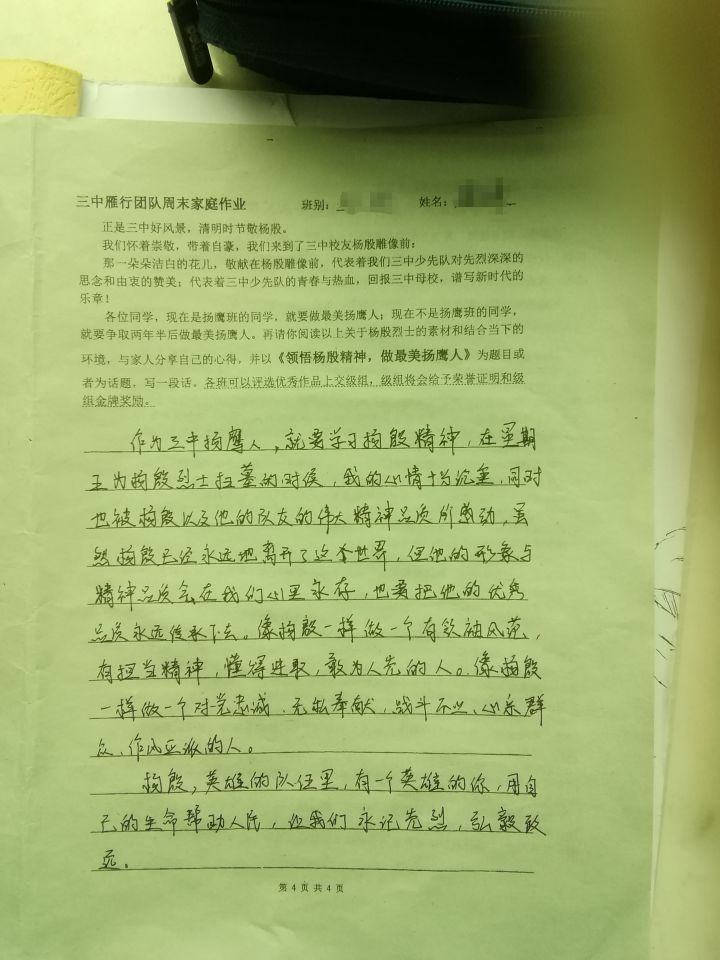 三中雁行团队周末家庭作业 班别： 姓名：
正是三中好风景，清明时节敬杨殷。
我们怀着崇敬，带着自豪，我们来到了三中校友杨殷雕像前：
那一朵朵洁白的花儿，敬献在杨殷雕像前，代表着我们三中少先队对先烈深深的
思念和由衷的赞美；代表着三中少先队的青春与热血，回报三中母校，谱写新时代的
乐章！
各位同学，现在是扬鹰班的同学，就要做最美扬鹰人；现在不是扬鹰班的同学，
就要争取两年半后做最美扬鹰人。再请你阅读以上关于杨殷烈士的素材和结合当下的
环境，与家人分享自己的心得，并以《领悟杨殷精神，做最美扬鹰人》为题目或
者为话题，写一段话。各班可以评选优秀作品上交级组，级组将会给予荣誉证明和级
组金牌奖励。
作为三中扬鹰人，就要学习杨殷精神，在星期
五为杨殷烈士扫墓的时候，我的心情十分沉重，同时
也被杨殷以及他的队友的伟大精神品质所感动，虽
然杨殷已经永远地离开了这个世界，但他的形象与
精神品质会在我们心里永存，也要把他的优秀
品质永远传承下去。像杨殷一样做一个有领袖风范，
有担当精神，懂得进取，敢为人先的人。像杨殷
一样做一个对党忠诚、无私奉献，战斗不止、心系群
众、作风正派的人。
杨殷，英雄的队伍里，有一个英雄的你，用自
己的生命帮助人民，让我们永记先烈，弘毅致
远。
第 4 页 共 4 页